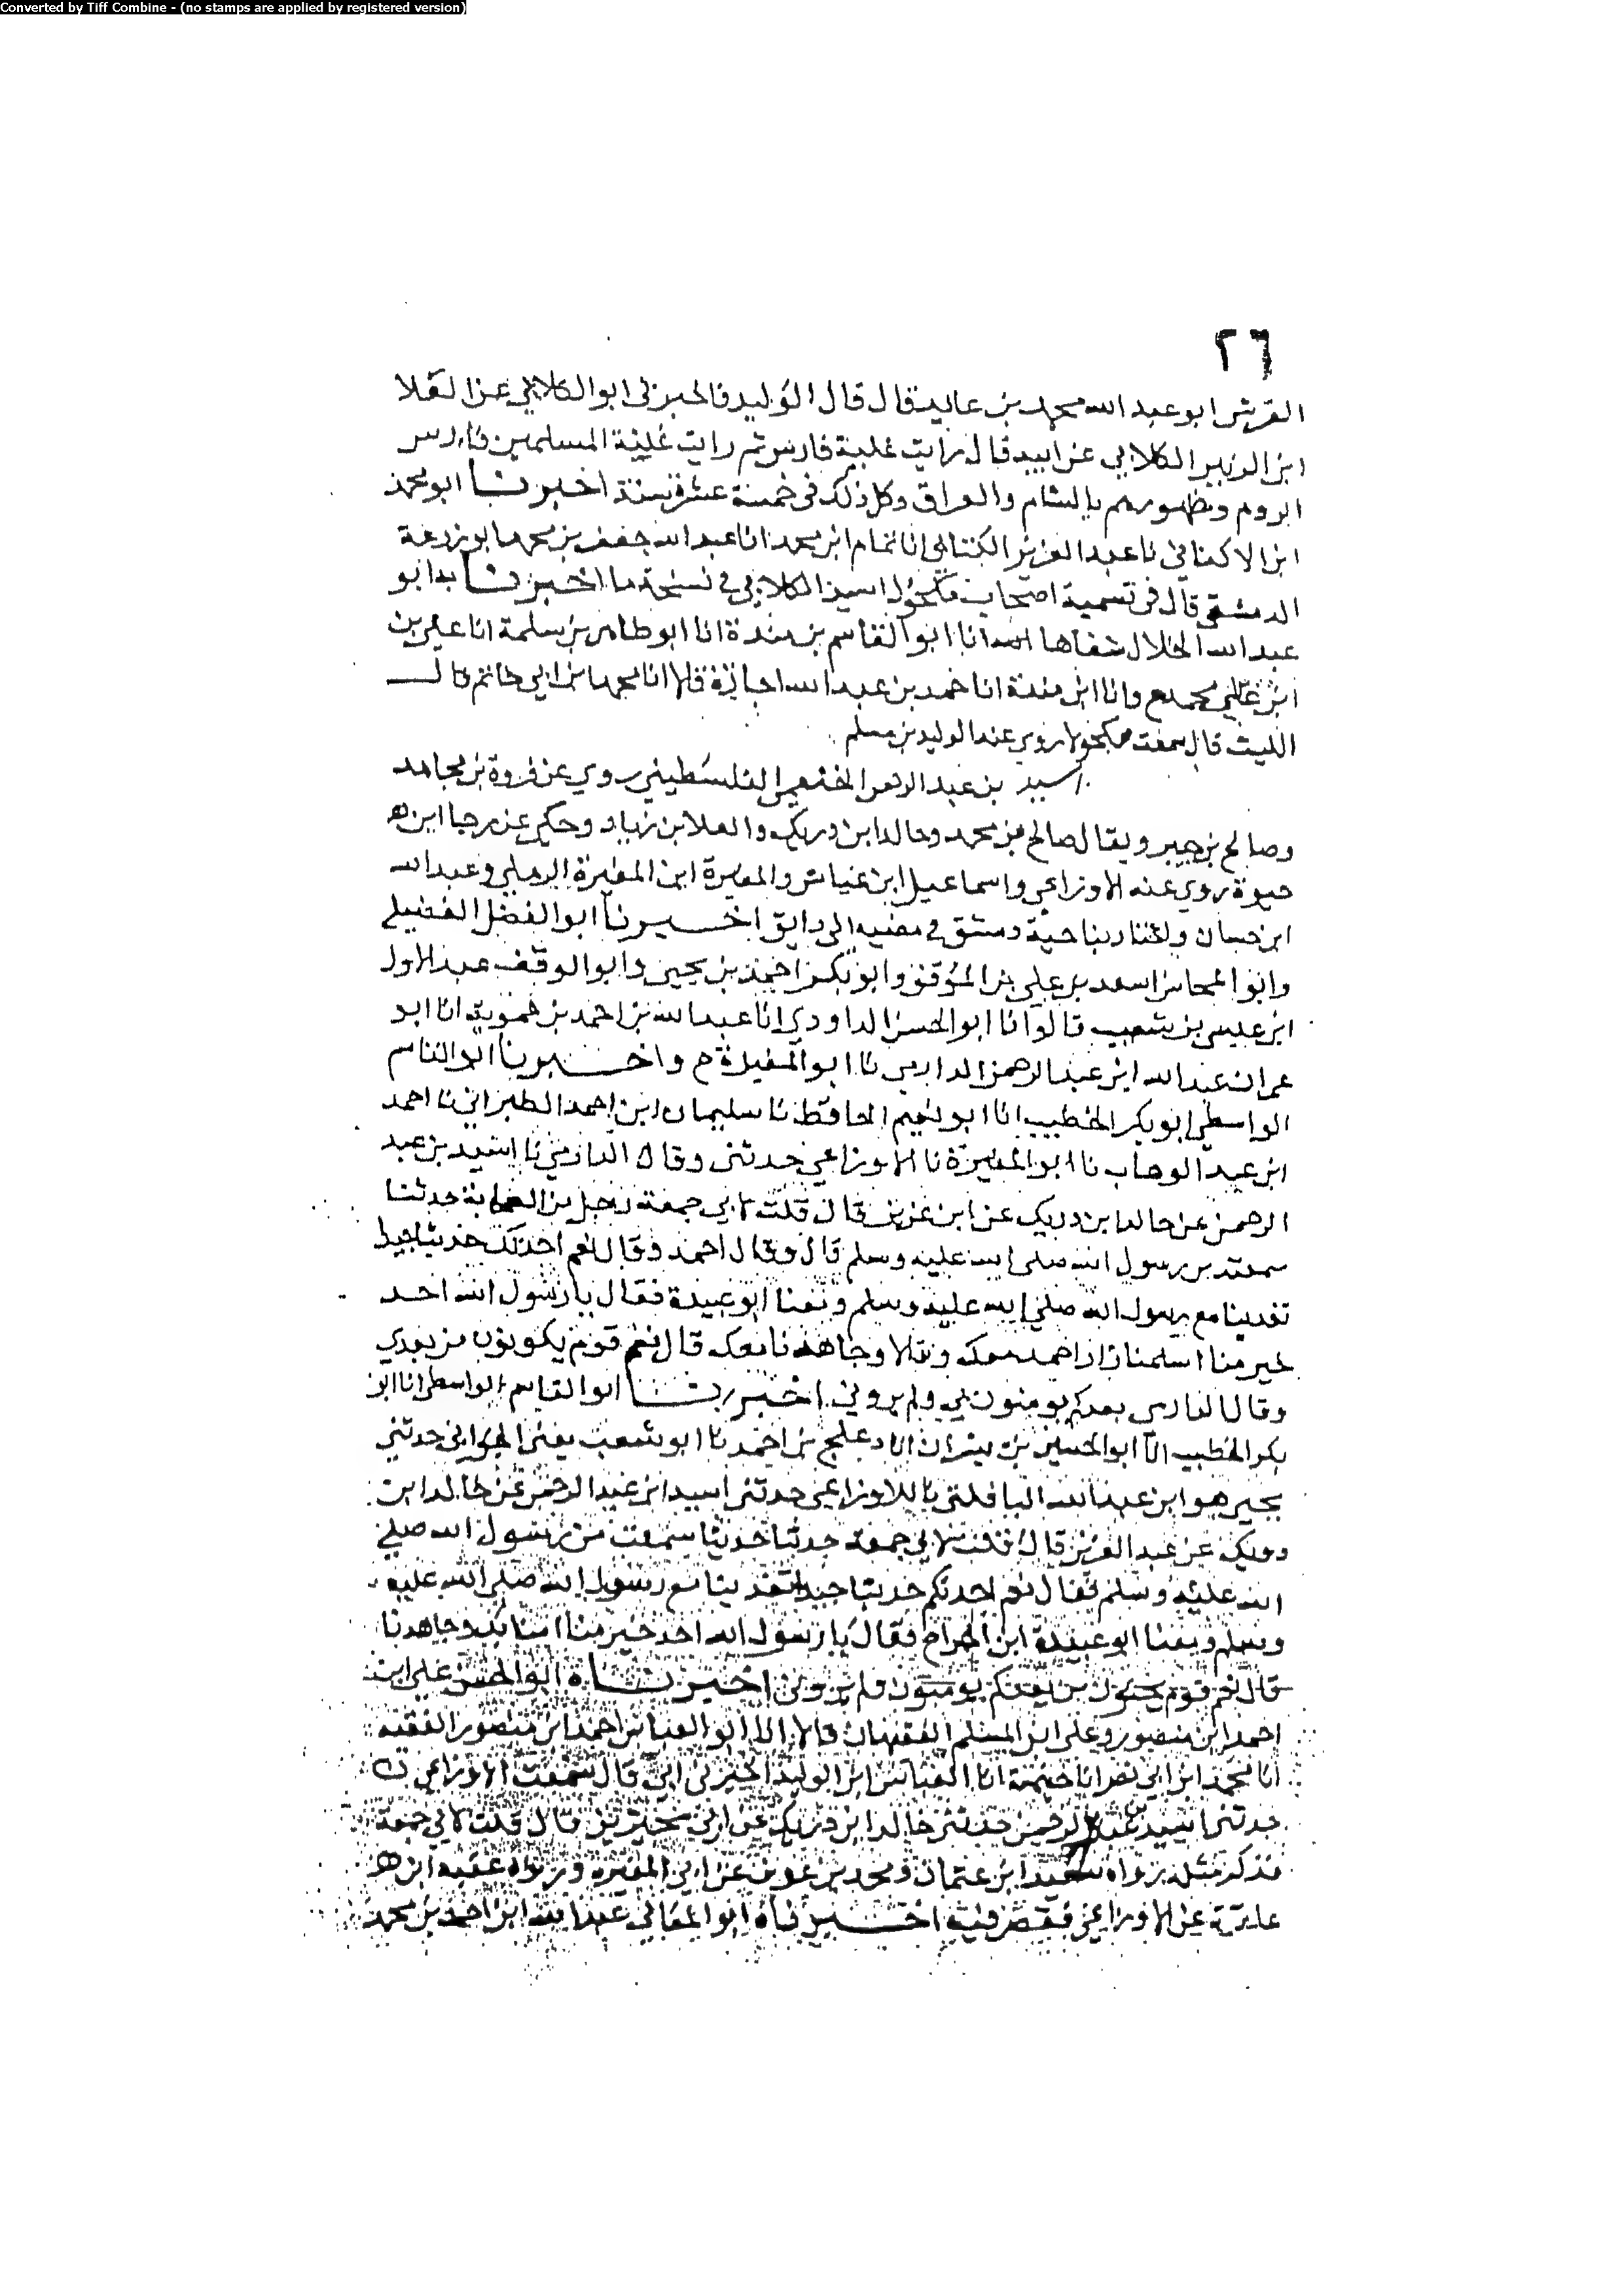 Converted by Tiff Combine - (no stamps are applied by registered version)
٢٦
القرشى ابو عبد الله محمد بن عايد قال قال الوليد فاخبرني ابو الكلابي عن العلا
ابن الزبير الكلابي عن ابيه قال رايت غلبة فارس ثم رايت غلبة المسلمين فارس
الروم وظهورهم بالشام والعراق وكل ذلك في خمسة عشرة سنة اخبرنا ابو محمد
ابن الاكفاني نا عبد العزيز الكتاني انا تمام ابن محمد انا عبد الله جعفر بن محمد نا ابو زرعة
الدمشقي قال في تسمية اصحاب مكحول اسيد الكلابي في نسخة ما اخبرنا به ابو
عبد الله الخلال شفاها انا ابو القاسم بن مندة انا ابو طاهر بن سلمة انا علي بن
ابن علي محمد ح وانا ابن مندة انا حمد بن عبد الله اجازة قالا انا محمد بن ابي حاتم قال
الليث قال سمعت مكحولا روى عنه الوليد بن مسلم
اسيد بن عبد الرحمن الخثعمي الفلسطيني روي عن فروة بن مجاهد
وصالح بن جبير ويقال صالح بن محمد وخالد ابن دريك والعلا بن زياد وحكي عن رجا ابن
حيوة روي عنه الاوزاعي واسماعيل ابن عياش والمغيرة ابن المغيرة الرملي وعبد الله
ابن حسان واختار بناحية دمشق في مضيه الى دابق اخبرنا ابو الفضل الفضيلي
وابو المحاسن اسعد بن علي بن الموفق وابو بكر احمد بن يحيى وابو الوقف عبد الاول
ابن عيسى بن شعيب قالوا انا ابو الحسن الداودي انا عبد الله بن احمد بن حموية انا ابو
عمران عبد الله ابن عبد الرحمن الدارمي نا ابو المغيرة ح واخبرنا ابو القاسم
الواسطي ابو بكر الخطيب انا ابو نعيم الحافظ نا سليمان ابن احمد الطبراني نا احمد
ابن عبد الوهاب نا ابو المغيرة نا الاوزاعي حدثني وقال الدارمي نا اسيد بن عبد
الرحمن عن خالد ابن دريك عن ابن عزيز قال قلت لابي جمعة رجل من الصحابة حدثنا
سمعته من رسول الله صلى الله عليه وسلم قال وقال احمد وقال نعم احدثك حديثا جيدا
تغدينا مع رسول الله صلى الله عليه وسلم ومعنا ابو عبيدة فقال يا رسول الله احد
خير منا اسلمنا زاد احمد معك وقالا وجاهدنا معك قال نعم قوم يكونون من بعدي
وقال الفارسي بعدكم يومنون بي ولم يروني اخبرنا ابو القاسم الواسطي انا ابو
بكر الخطيب انا ابو الحسين بن بشران انا دعلج بن احمد نا ابو شعيب يعني الحراني حدثني
يحيى هو ابن عبد الله البابلتي نا الاوزاعي حدثني اسيد ابن عبد الرحمن عن خالد ابن
دريك عن عبد العزيز قال قلت لابي جمعة حدثنا حديثا سمعت من رسول الله صلى
الله عليه وسلم فقال نعم احدثكم حديثا جيدا تغدينا مع رسول الله صلى الله عليه
وسلم ومعنا ابو عبيدة ابن الجراح فقال يا رسول الله احد خير منا امنا بك وجاهدنا
قال نعم قوم يجيئون من بعدكم يومنون ولم يروني اخبرناه ابو الحسن علي ابن
احمد ابن منصور وعلي ابن المسلم الفقيهان قالا انا ابو العباس احمد ابن منصور الفقيه
انا محمد ابن ابي نصر انا خيثمة انا العباس ابن الوليد اخبرني ابي قال سمعت الاوزاعي
حدثني اسيد بن عبد الرحمن حدثني خالد ابن دريك عن ابن محيريز قال قلت لابي جمعة
فذكر مثله رواه سعيد ابن عثمان ومحمد بن عوف عن ابي المغيرة ورواه عقبة ابن
علقمة عن الاوزاعي فقصر فيه اخبرناه ابو المعالي عبد الله ابن احمد بن محمد